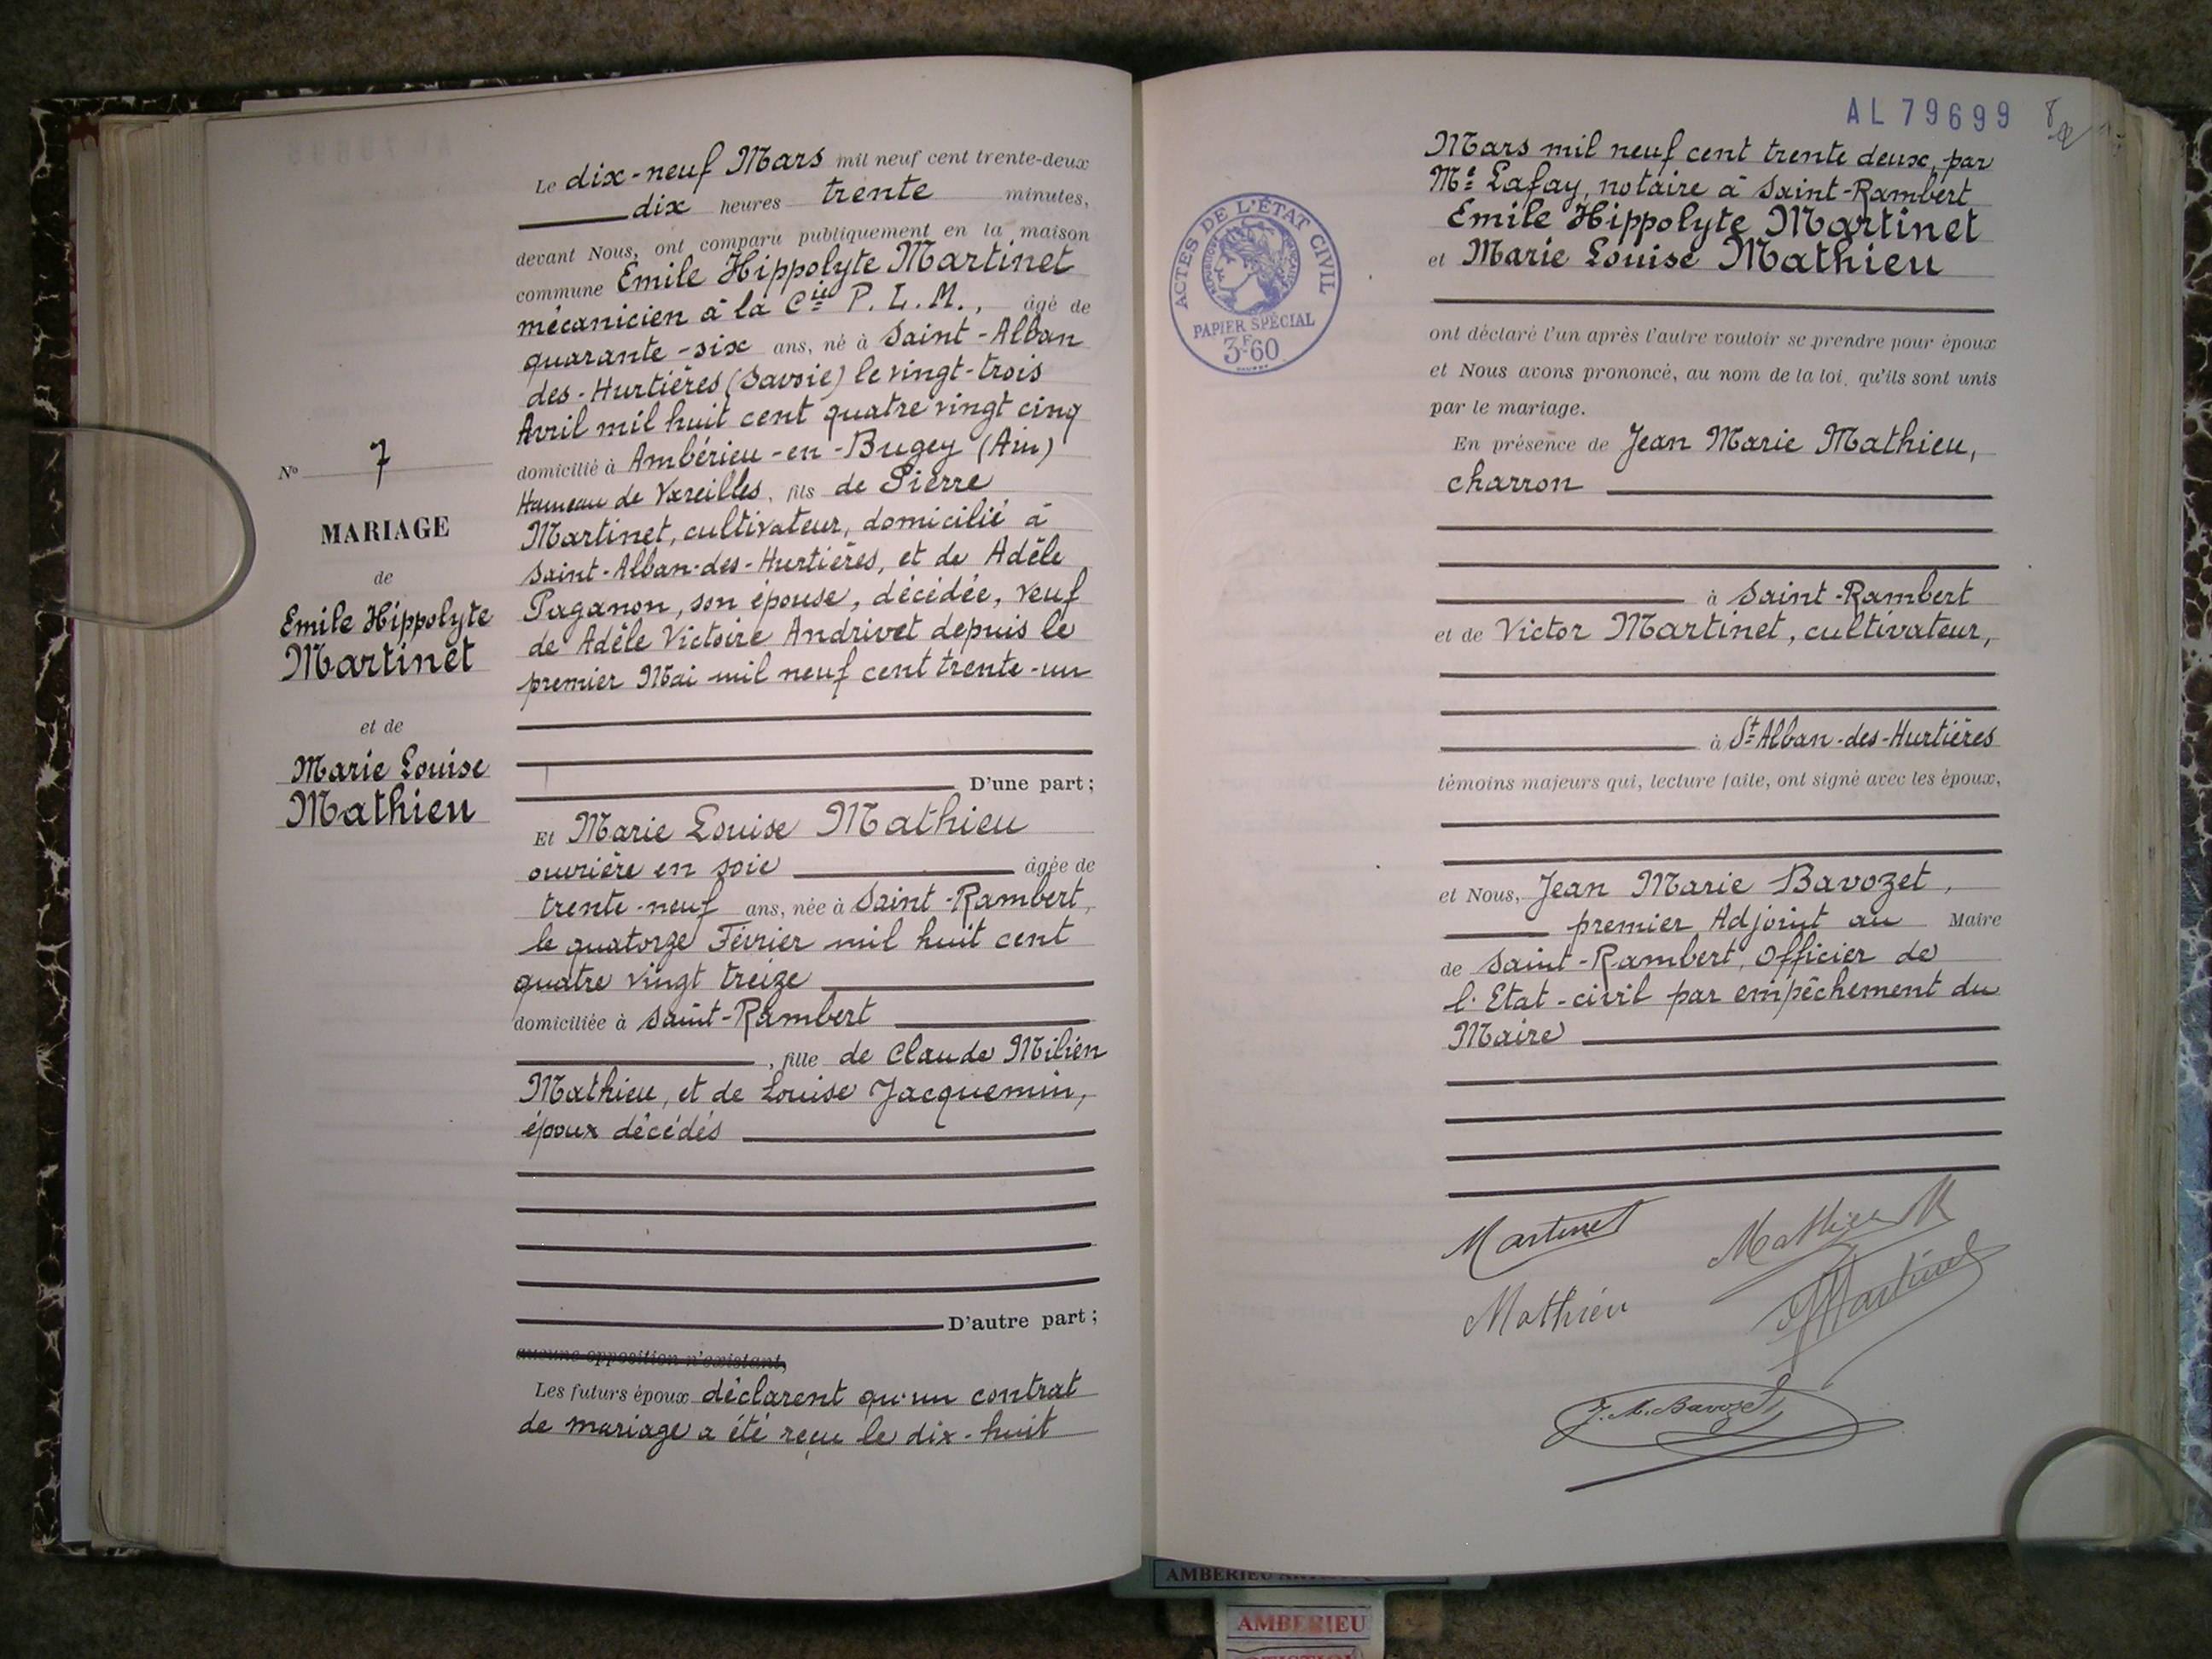 N° 7
MARIAGE
de
Emile Hippolyte
Martinet
et de
Marie Louise
Mathieu
Le dix-neuf Mars mil neuf cent trente-deux
dix heures trente minutes,
devant Nous, ont comparu publiquement en la maison
commune Emile Hippolyte Martinet
mécanicien à la Cie P. L. M., âgé de
quarante-six ans, né à Saint-Alban
des-Hurtières (Savoie) le vingt-trois
Avril mil huit cent quatre vingt cinq
domicilié à Ambérieu-en-Bugey (Ain)
Hameau de Vareilles, fils de Pierre
Martinet, cultivateur, domicilié à
Saint-Alban-des-Hurtières, et de Adèle
Paganon, son épouse, décédée, veuf
de Adèle Victoire Andrivet depuis le
premier Mai mil neuf cent trente-un
D'une part;
Et Marie Louise Mathieu
ouvrière en soie âgée de
trente-neuf ans, née à Saint-Rambert,
le quatorze Février mil huit cent
quatre vingt treize
domiciliée à Saint-Rambert
, fille de Claude Milien
Mathieu, et de Louise Jacquemin,
époux décédés
D'autre part;
aucune opposition n'existant,
Les futurs époux déclarent qu'un contrat
de mariage a été reçu le dix-huit
AL 79699
8
ACTES DE L'ÉTAT CIVIL
RÉPUBLIQUE FRANÇAISE
PAPIER SPÉCIAL
3F60
Mars mil neuf cent trente deux, par
Me Lafay, notaire à Saint-Rambert
Emile Hippolyte Martinet
et Marie Louise Mathieu
ont déclaré l'un après l'autre vouloir se prendre pour époux
et Nous avons prononcé, au nom de la loi, qu'ils sont unis
par le mariage.
En présence de Jean Marie Mathieu,
charron
à Saint-Rambert
et de Victor Martinet, cultivateur,
à St Alban-des-Hurtières
témoins majeurs qui, lecture faite, ont signé avec les époux,
et Nous, Jean Marie Bavozet,
premier Adjoint au Maire
de Saint-Rambert, Officier de
l'Etat-civil par empêchement du
Maire
Martinet Mathieu M
Mathieu Martinet
J. M. Bavozet
AMBERIEU
AMBERIEU